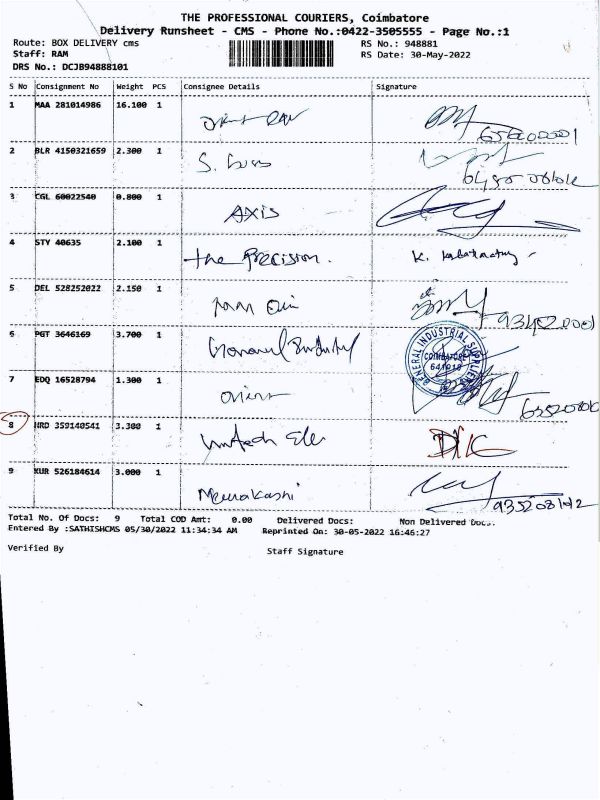 THE PROFESSIONAL COURIERS, Coimbatore
Delivery Runsheet - CMS - Phone No.:0422-3505555 - Page No.:1
Route: BOX DELIVERY cms RS No.: 948881
Staff: RAM RS Date: 30-May-2022
DRS No.: DCJB94888101
S No Consignment No Weight PCS Consignee Details Signature
1 MAA 281014986 16.100 1
2 BLR 4150321659 2.300 1
3 CGL 60022540 0.800 1 AXIS
4 STY 40635 2.100 1 the Precision.
5 DEL 528252022 2.150 1
6 PGT 3646169 3.700 1
GENERAL INDUSTRIAL SUPPLIERS
COIMBATORE
7 EDQ 16528794 1.300 1
8 HRD 359140541 3.300 1
9 KUR 526184614 3.000 1 Meenakashi
Total No. Of Docs: 9 Total COD Amt: 0.00 Delivered Docs: Non Delivered Docs:
Entered By :SATHISHCMS 05/30/2022 11:34:34 AM Reprinted On: 30-05-2022 16:46:27
Verified By Staff Signature